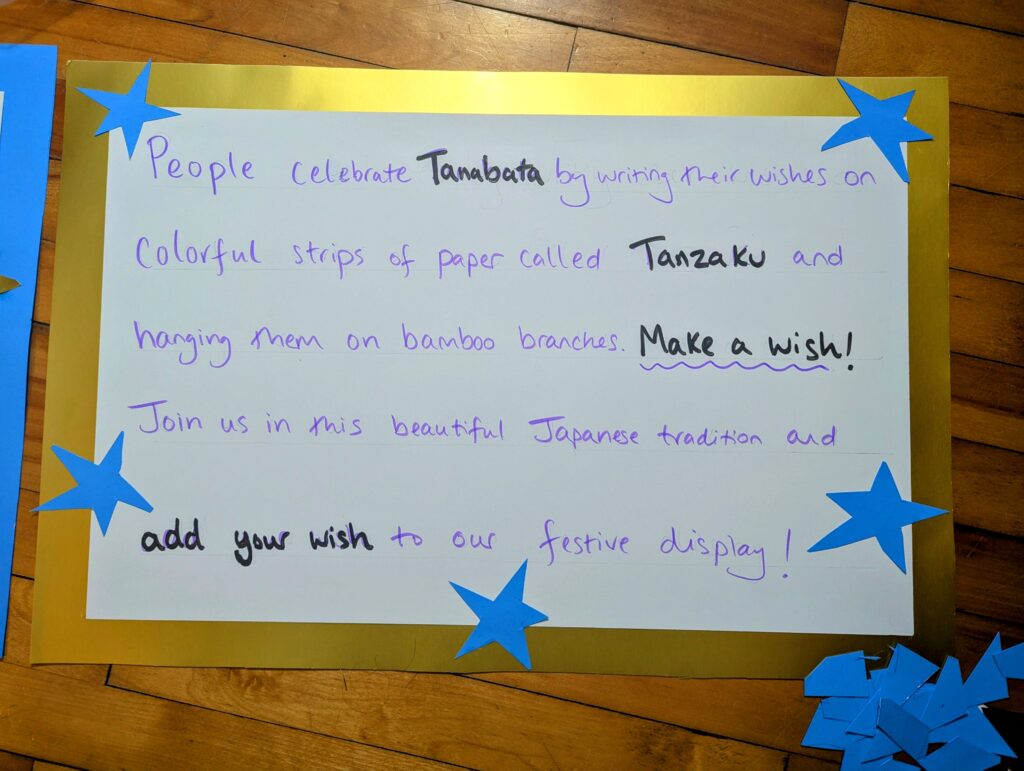 People celebrate Tanabata by writing their wishes on
colorful strips of paper called Tanzaku and
hanging them on bamboo branches. Make a wish!
Join us in this beautiful Japanese tradition and
add your wish to our festive display!